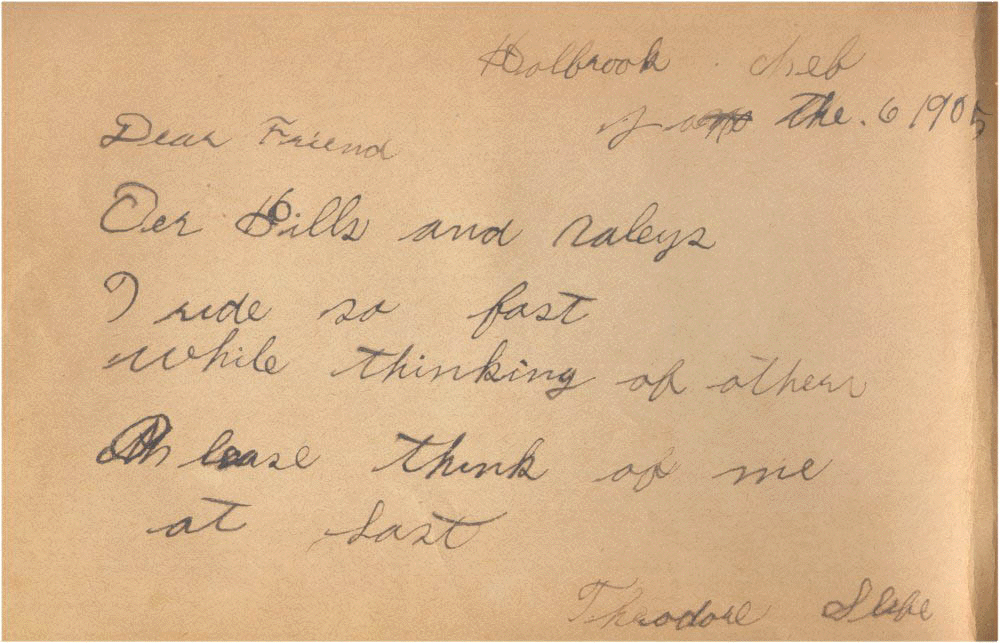 Holbrook Neb
Jan The. 6 1905
Dear Friend
Oer Hills and valeys
I ride so fast
while thinking of others
Please think of me
at Last
Theodore